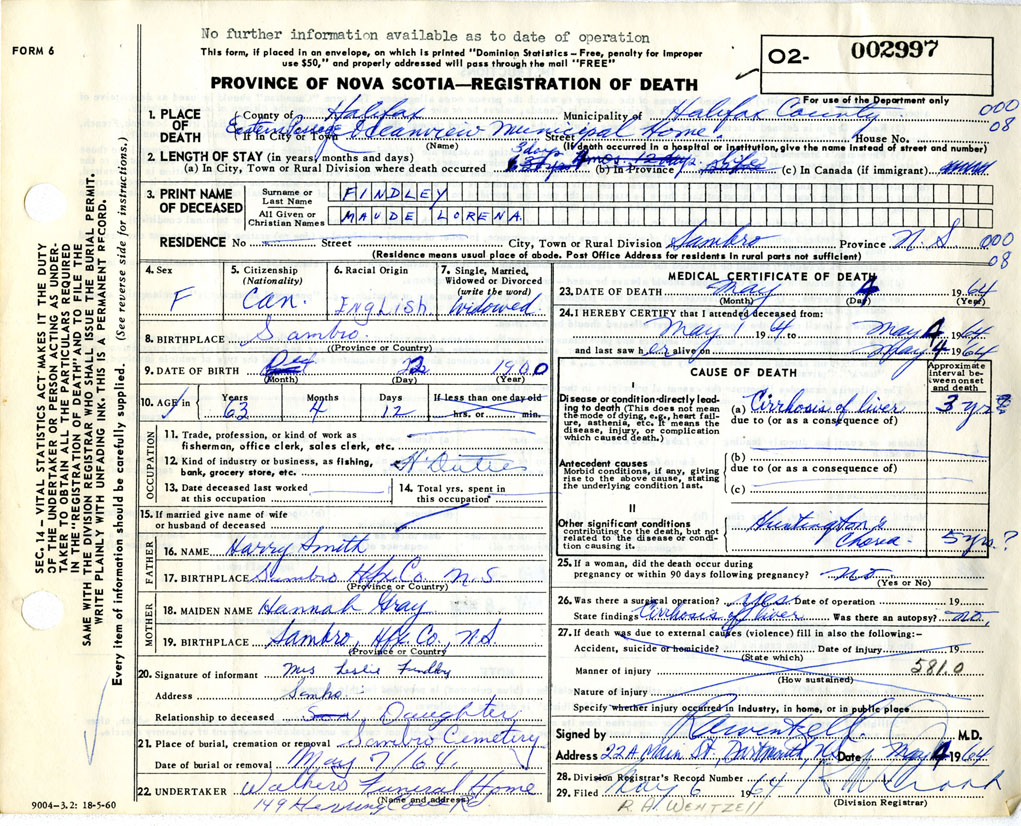 No further information available as to date of operation
FORM 6
This form, if placed in an envelope, on which is printed "Dominion Statistics – Free, penalty for improper
use $50," and properly addressed will pass through the mail "FREE"
PROVINCE OF NOVA SCOTIA—REGISTRATION OF DEATH
O2- 002997
For use of the Department only
1. PLACE OF DEATH
County of Halifax Municipality of Halifax County 000
08
If in City or Town Eastern Passage Oceanview Municipal Home Street House No.
(Name) (If death occurred in a hospital or institution, give the name instead of street and number)
2. LENGTH OF STAY (in years, months and days)
(a) In City, Town or Rural Division where death occurred 3 days (b) In Province Life (c) In Canada (if immigrant)
3. PRINT NAME OF DECEASED
Surname or Last Name FINDLEY
All Given or Christian Names MAUDE LORENA
RESIDENCE No Street City, Town or Rural Division Sambro Province N.S 000
08
(Residence means usual place of abode. Post Office Address for residents in rural parts not sufficient)
4. Sex F
5. Citizenship (Nationality) Can.
6. Racial Origin English
7. Single, Married, Widowed or Divorced (write the word) Widowed
8. BIRTHPLACE Sambro
(Province or Country)
9. DATE OF BIRTH Dec 22 1900
(Month) (Day) (Year)
10. AGE in Years Months Days If less than one day old
63 4 12 hrs. or min.
OCCUPATION
11. Trade, profession, or kind of work as fisherman, office clerk, sales clerk, etc.
12. Kind of industry or business, as fishing, bank, grocery store, etc. H Duties
13. Date deceased last worked at this occupation
14. Total yrs. spent in this occupation
15. If married give name of wife or husband of deceased
FATHER
16. NAME Harry Smith
17. BIRTHPLACE Sambro Hfx Co. N.S
(Province or Country)
MOTHER
18. MAIDEN NAME Hannah Gray
19. BIRTHPLACE Sambro, Hfx Co, NS
(Province or Country)
20. Signature of informant Mrs Leslie Findley
Address Sambro
Relationship to deceased Son, Daughter
21. Place of burial, cremation or removal Sambro Cemetery
Date of burial or removal May 7/64.
22. UNDERTAKER Walkers Funeral Home
(Name and address)
149 Herring Cove Rd
9004—3.2: 18-5-60
MEDICAL CERTIFICATE OF DEATH
23. DATE OF DEATH May 4 1964
(Month) (Day) (Year)
24. I HEREBY CERTIFY that I attended deceased from:
May 1 1964 to May 4 1964
and last saw her alive on May 4 1964
CAUSE OF DEATH
Approximate interval between onset and death
I
Disease or condition directly leading to death (This does not mean the mode of dying, e.g., heart failure, asthenia, etc. It means the disease, injury, or complication which caused death.)
(a) Cirrhosis of liver 3 yrs?
due to (or as a consequence of)
Antecedent causes
Morbid conditions, if any, giving rise to the above cause, stating the underlying condition last.
(b)
due to (or as a consequence of)
(c)
II
Other significant conditions contributing to the death, but not related to the disease or condition causing it.
Huntington's Chorea 5 yrs?
25. If a woman, did the death occur during pregnancy or within 90 days following pregnancy? No
(Yes or No)
26. Was there a surgical operation? yes Date of operation 19
State findings Cirrhosis of liver Was there an autopsy? no.
27. If death was due to external causes (violence) fill in also the following:–
Accident, suicide or homicide? Date of injury 19
(State which)
Manner of injury 581.0
(How sustained)
Nature of injury
Specify whether injury occurred in industry, in home, or in public place
Signed by R A Wentzell M.D.
Address 22A Main St, Dartmouth, N.S. Date May 4 1964
28. Division Registrar's Record Number
29. Filed May 6 1964
(Division Registrar)
R. A. WENTZELL
SEC. 14 – VITAL STATISTICS ACT MAKES IT THE DUTY
OF THE UNDERTAKER OR PERSON ACTING AS UNDER-
TAKER TO OBTAIN ALL THE PARTICULARS REQUIRED
IN THE "REGISTRATION OF DEATH" AND TO FILE THE
SAME WITH THE DIVISION REGISTRAR WHO SHALL ISSUE THE BURIAL PERMIT.
WRITE PLAINLY WITH UNFADING INK. THIS IS A PERMANENT RECORD.
Every item of information should be carefully supplied. (See reverse side for instructions.)